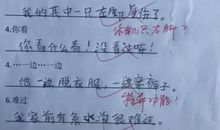 我的其中一只左脚受伤了。
你有几只左脚？
4.你看
你看什么看！没看过啊！
4.……一边……一边
他一边脱衣服，一边穿裤子。
6.难过
我家前有条水沟很难过。